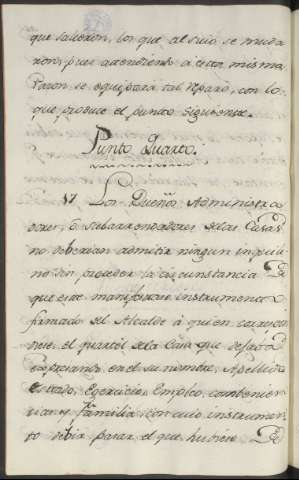 que salieron, los que al suio se muda
ron, pues atendiendo a esta misma
razon se equipara tal reparo, con lo
que produce el punto siguiente.
Punto Quarto.
17 Los Dueños Administra
dores, ó Subarrendadores de las Casas
no deberian admitir ningun inquili
no sin preceder la circunstancia de
que este manifestare instrumento
firmado del Alcalde á quien correspon
diere el quartel de la Casa que dejado
expresando en el su nombre, Apellido
estado, Exercicio, Empleo,
y familia, con cuio instrumen
to debia pasar el que hubiere de